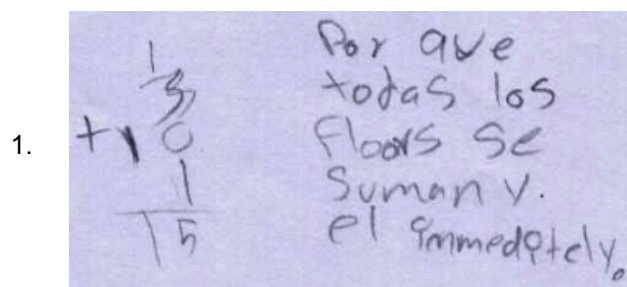 1.
1
3
+ 10
1
15
Por que
todas los
floors se
suman y.
el immedetely.